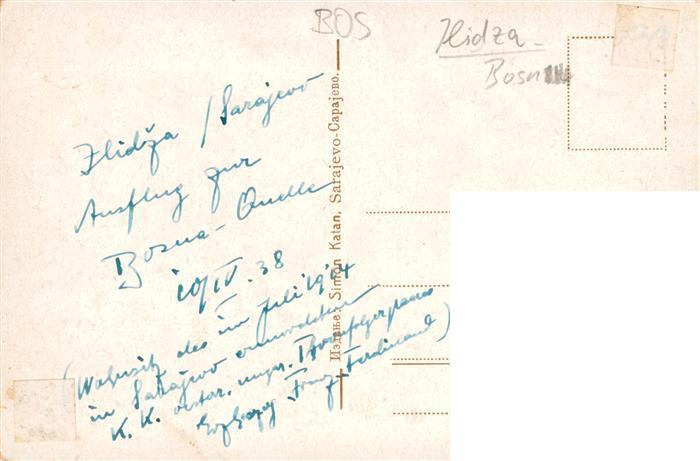 BOS
Ilidza
Bosn
Ilidža / Sarajevo
Ausflug zur
Bosna-Quelle
10/IV. 38
(Wohnsitz des im Juli 1914
in Sarajevo ermordeten
K. K. österr. ungar. Thronfolgerpaares
Erzherzog Franz Ferdinand)
Издање: Simon Katan, Sarajevo-Сарајево.